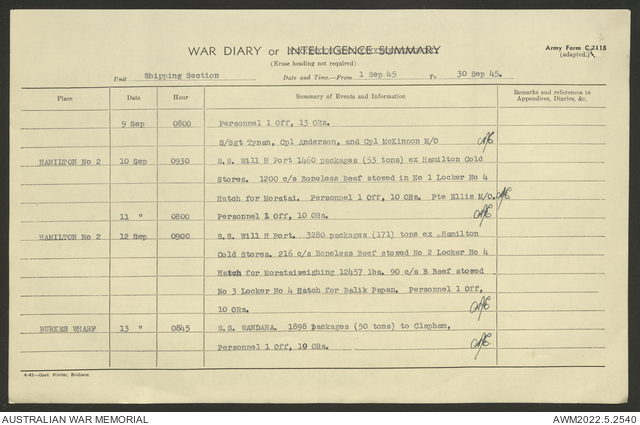 WAR DIARY or INTELLIGENCE SUMMARY
Army Form C.2118
(adapted.)
(Erase heading not required)
Unit Shipping Section Date and Time.—From 1 Sep 45 To 30 Sep 45.
Place Date Hour Summary of Events and Information Remarks and references to Appendices, Diaries, &c.
9 Sep 0800 Personnel 1 Off, 13 ORs.
S/Sgt Tynan, Cpl Anderson, and Cpl McKinnon M/O
HAMILTON No 2 10 Sep 0930 S.S. Will H Port 1460 packages (53 tons) ex Hamilton Cold
Stores. 1200 c/s Boneless Beef stowed in No 1 Locker No 4
Hatch for Moratai. Personnel 1 Off, 10 ORs. Pte Ellis M/O.
11 " 0800 Personnel 1 Off, 10 ORs.
HAMILTON No 2 12 Sep 0900 S.S. Will H Port. 3280 packages (171) tons ex Hamilton
Cold Stores. 216 c/s Boneless Beef stowed No 2 Locker No 4
Hatch for Morataiweighing 12457 lbs. 90 c/s B Beef stowed
No 3 Locker No 4 Hatch for Balik Papan. Personnel 1 Off,
10 ORs.
BURKES WHARF 13 " 0845 S.S. WANDANA. 1898 packages (50 tons) to Clapham,
Personnel 1 Off, 10 ORs.
4-45—Govt. Printer, Brisbane.
AUSTRALIAN WAR MEMORIAL AWM2022.5.2540